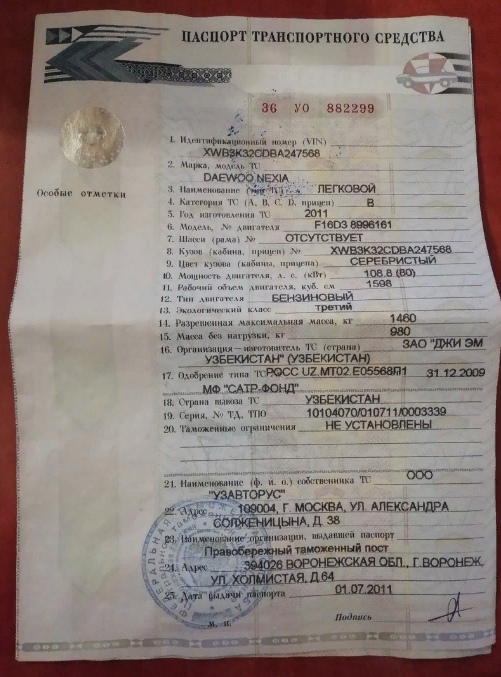 ПАСПОРТ ТРАНСПОРТНОГО СРЕДСТВА
36 УО 882299
Особые отметки
1. Идентификационный номер (VIN)
XWB3K32CDBA247568
2. Марка, модель ТС
DAEWOO NEXIA
3. Наименование (тип ТС) ЛЕГКОВОЙ
4. Категория ТС (А, В, С, D, прицеп) B
5. Год изготовления ТС 2011
6. Модель, № двигателя F16D3 8996161
7. Шасси (рама) № ОТСУТСТВУЕТ
8. Кузов (кабина, прицеп) № XWB3K32CDBA247568
9. Цвет кузова (кабины, прицепа) СЕРЕБРИСТЫЙ
10. Мощность двигателя, л. с. (кВт) 108.8 (80)
11. Рабочий объем двигателя, куб. см 1598
12. Тип двигателя БЕНЗИНОВЫЙ
13. Экологический класс третий
14. Разрешенная максимальная масса, кг 1460
15. Масса без нагрузки, кг 980
16. Организация—изготовитель ТС (страна) ЗАО "ДЖИ ЭМ
УЗБЕКИСТАН" (УЗБЕКИСТАН)
17. Одобрение типа ТС РОСС UZ.MT02.E05568П1 31.12.2009
МФ "САТР-ФОНД"
18. Страна вывоза ТС УЗБЕКИСТАН
19. Серия, № ТД, ТПО 10104070/010711/0003339
20. Таможенные ограничения НЕ УСТАНОВЛЕНЫ
21. Наименование (ф. и. о.) собственника ТС ООО
"УЗАВТОРУС"
22. Адрес 109004, Г. МОСКВА, УЛ. АЛЕКСАНДРА
СОЛЖЕНИЦЫНА, Д. 38
23. Наименование организации, выдавшей паспорт
Правобережный таможенный пост
24. Адрес 394026 ВОРОНЕЖСКАЯ ОБЛ., Г.ВОРОНЕЖ,
УЛ. ХОЛМИСТАЯ, Д.64
25. Дата выдачи паспорта 01.07.2011
М. П. Подпись